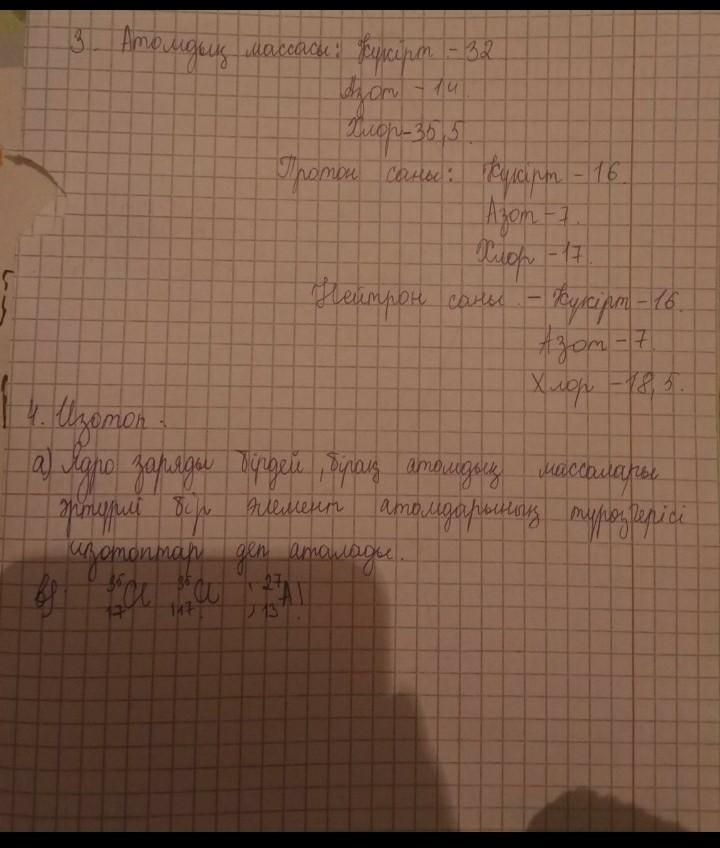 3. Атомдық массасы: Күкірт - 32
Азот - 14.
Хлор - 35,5.
Протон саны: Күкірт - 16.
Азот - 7.
Хлор - 17.
Нейтрон саны - Күкірт - 16.
Азот - 7.
Хлор - 18,5.
4. Изотоп.
а) Ядро заряды бірдей, бірақ атомдық массалары
әртүрлі бір элемент атомдарының түрөзгерісі
изотоптар деп аталады.
в) ³⁵₁₇Cl ³⁵₁₇Cl ; ²⁷₁₃Al